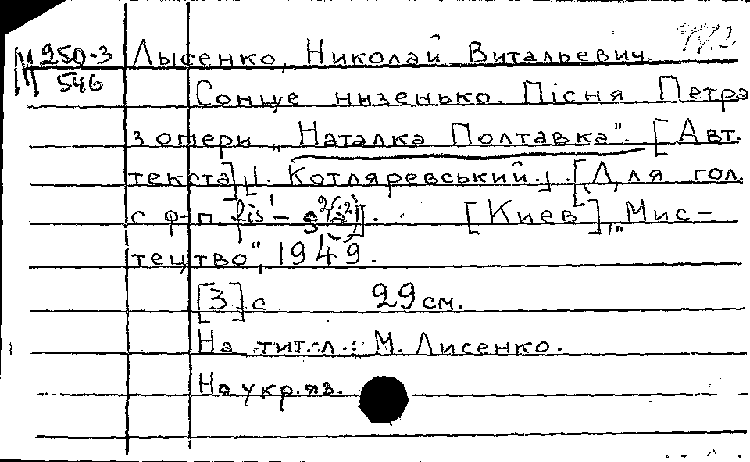 М 250-3
546
Лысенко, Николай Витальевич.
Сонце низенько. Пісня Петра
з опери „Наталка Полтавка". [Авт.
текста] І. Котляревський. [Для гол.
с ф-п. fis¹ - g²(a²)]. [Киев], „Мис-
тецтво", 1949.
[3] с 29 см.
На тит. л.: М. Лисенко.
На укр. яз.